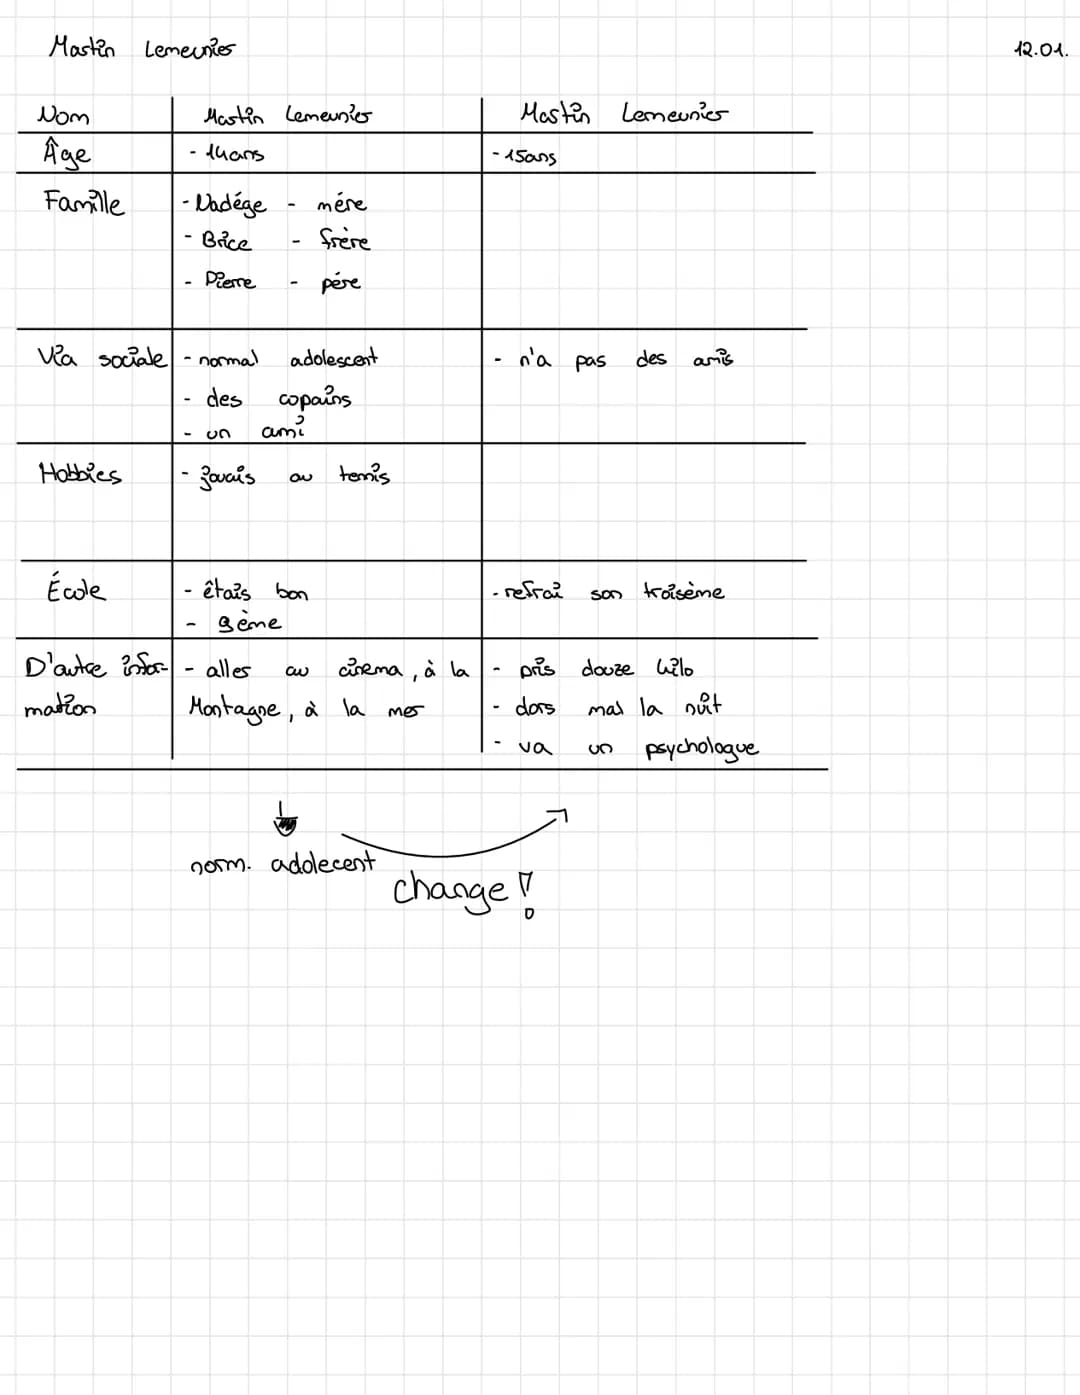 Martin Lemeunier
12.01.
Nom Martin Lemeunier Martin Lemeunier
Âge - 14ans - 15ans
Famille - Nadége - mére
- Brice - frère
- Pierre - pére
Via sociale - normal adolescent - n'a pas des amis
- des copains
- un ami
Hobbies - jouais au tennis
École - êtais bon - refrai son troisème
- 3ème
D'autre infor- - alles au cinema, à la - pris douze kilo
mation Montagne, à la mer - dors mal la nuit
- va un psychologue
norm. adolecent
change!